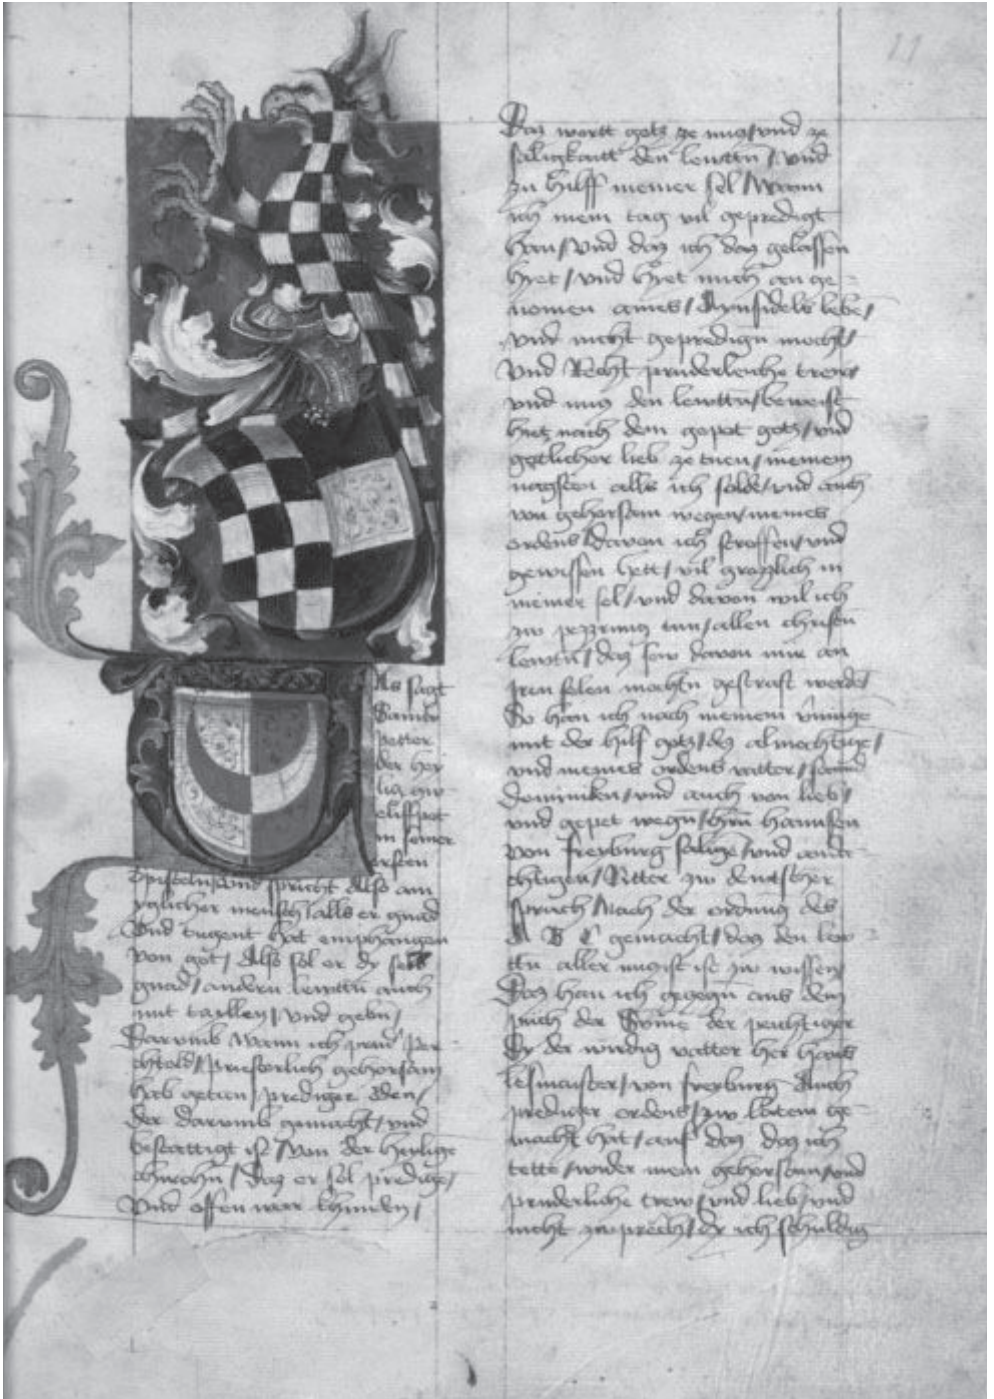 Als sagt
Sannd
petter
der hey
lig zwe
elffpot
in seiner
ersten
Episteln/und spricht Also ain
yglicher mensch/alls er gnad
Und tugent hat emphangen
von got/Also sol er dy selb
gnad/andern lewttn auch
mit taillen/und gebn/
Darumb Wann ich prud' Per-
chtold/priesterlich gehorsam
hab getan/prediger Orden/
der darumb gemacht/und
bestettigt ist/Von der heylige
chirchn/Das er sol predige/
Und offenwar khunden/
Das wortt gotz ze nucz/und ze
saligkaitt den lewttn/und
zu hilff meiner sel/Wann
ich mein tag vil gepredigt
han/Und das ich das gelassen
hyet/und hyet mich an ge-
nomen aines/Aynsidels lebe/
und nicht gepredign mocht/
Und Recht pruderleiche trew
und nucz den lewttn/beweist
hiet nach dem gepot gotz/und
gotlicher lieb ze tuen/meinem
nagsten alls ich solde/und auch
von gehorsam wegen/meines
ordens/Davon ich straffen/und
gewissen hett/vil in
meiner sel/und davon wil ich
zw pezzrung tun/allen christen
lewttn/das sew davon mir an
iren selen mochtn gestraft werde
So han ich nach meinem
mit der hilf gotz/des almechtige/
und meines ordens vatter/sannd
Dominiken/und auch von lieb/
und gepet wegn/hern hannsen
von freyburg salige/und andä-
chtigen/Ritter zw dewtscher
sprach/Nach der ordnung des
A B C gemacht/das den lew-
ttn aller nuczist ist zw wissen/
Das han ich geczogn aus dem
puch der Summe der peichtiger
Dy der wirdig vatter her hans
lesmaister/von freyburg Auch
prediger ordens/zw latein ge-
macht hat/auf das das ich
tette/wider mein gehorsam/und
pruderliche trew/und lieb/und
nicht zwprech/der ich schuldig